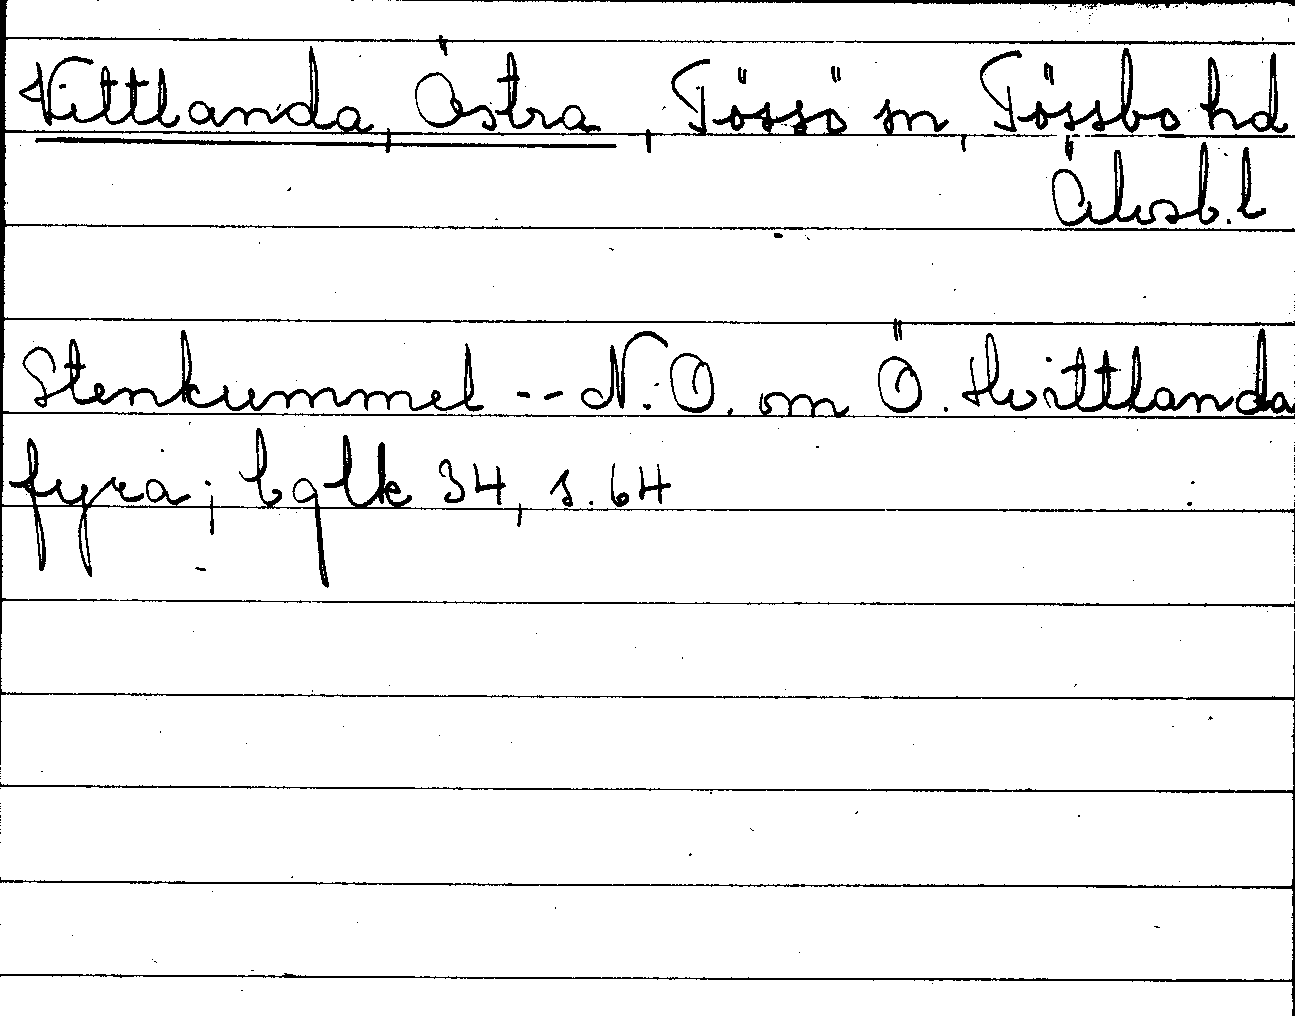 Vittlanda, Östra, Tössö sn, Tössbo hd
Älvsb. l
Stenkummel -- N.O. om Ö. Hvittlanda
fyra; bglk 34, s. 64